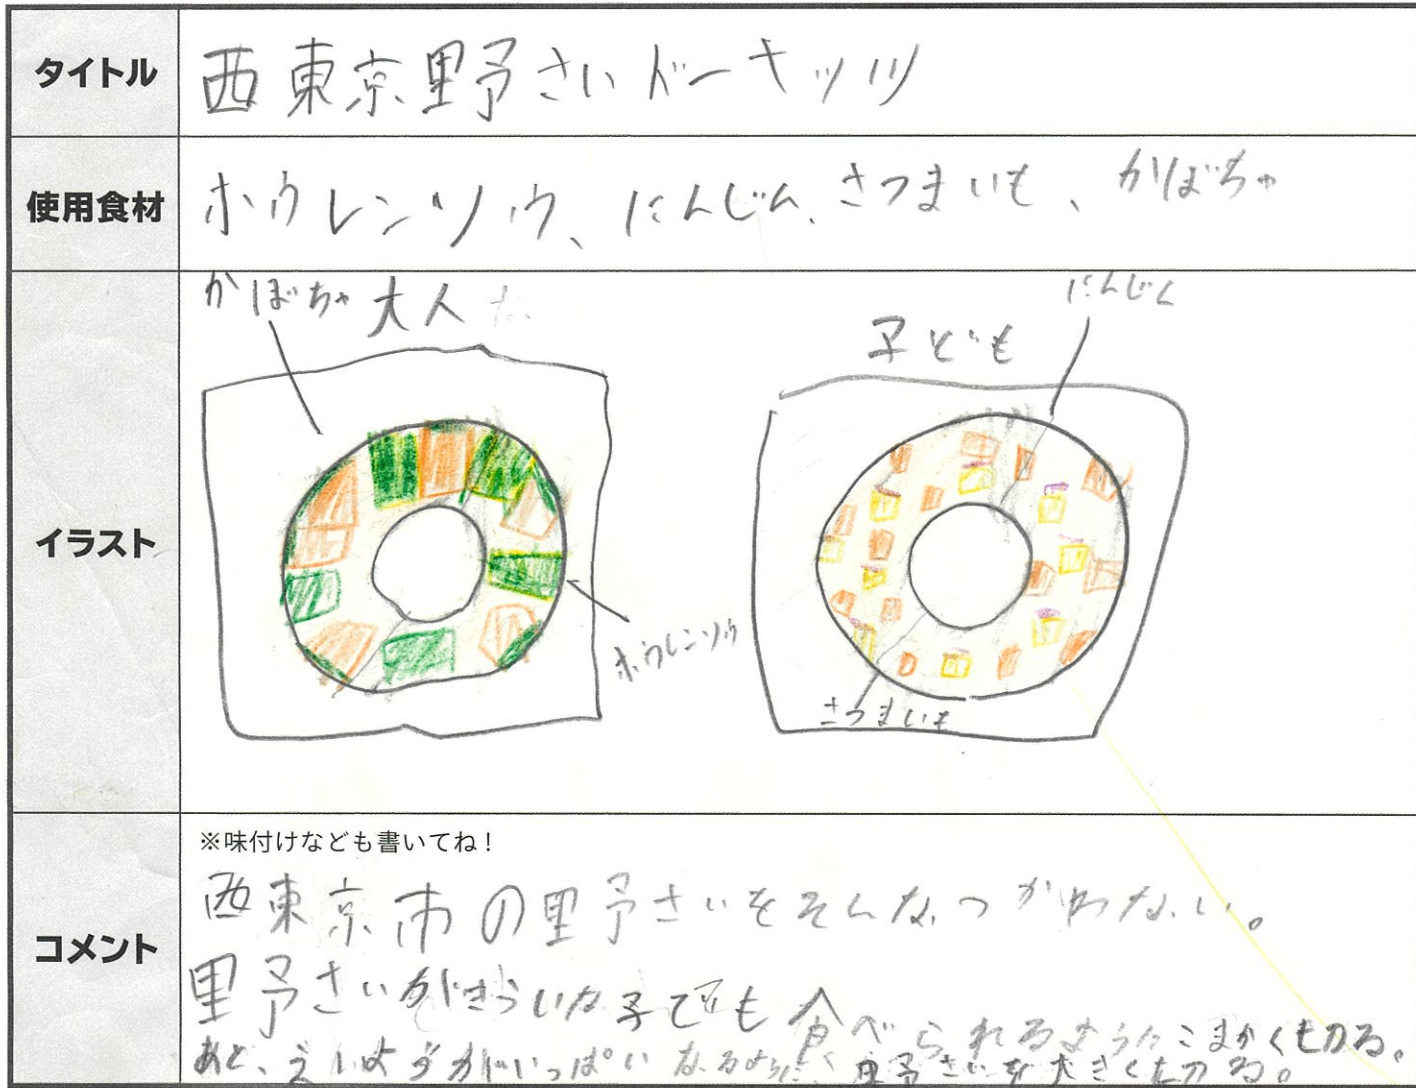 タイトル
西東京野さいドーナッツ
使用食材
ホウレンソウ、にんじん、さつまいも、かぼちゃ
イラスト
かぼちゃ 大人
にんじん
子ども
ホウレンソウ
さつまいも
コメント
※味付けなども書いてね！
西東京市の野さいをそんなつかわない。
野さいがきらいな子でも食べられるようにこまかく切る。
あと、えいようがいっぱいなるように、野さいを大きく切る。